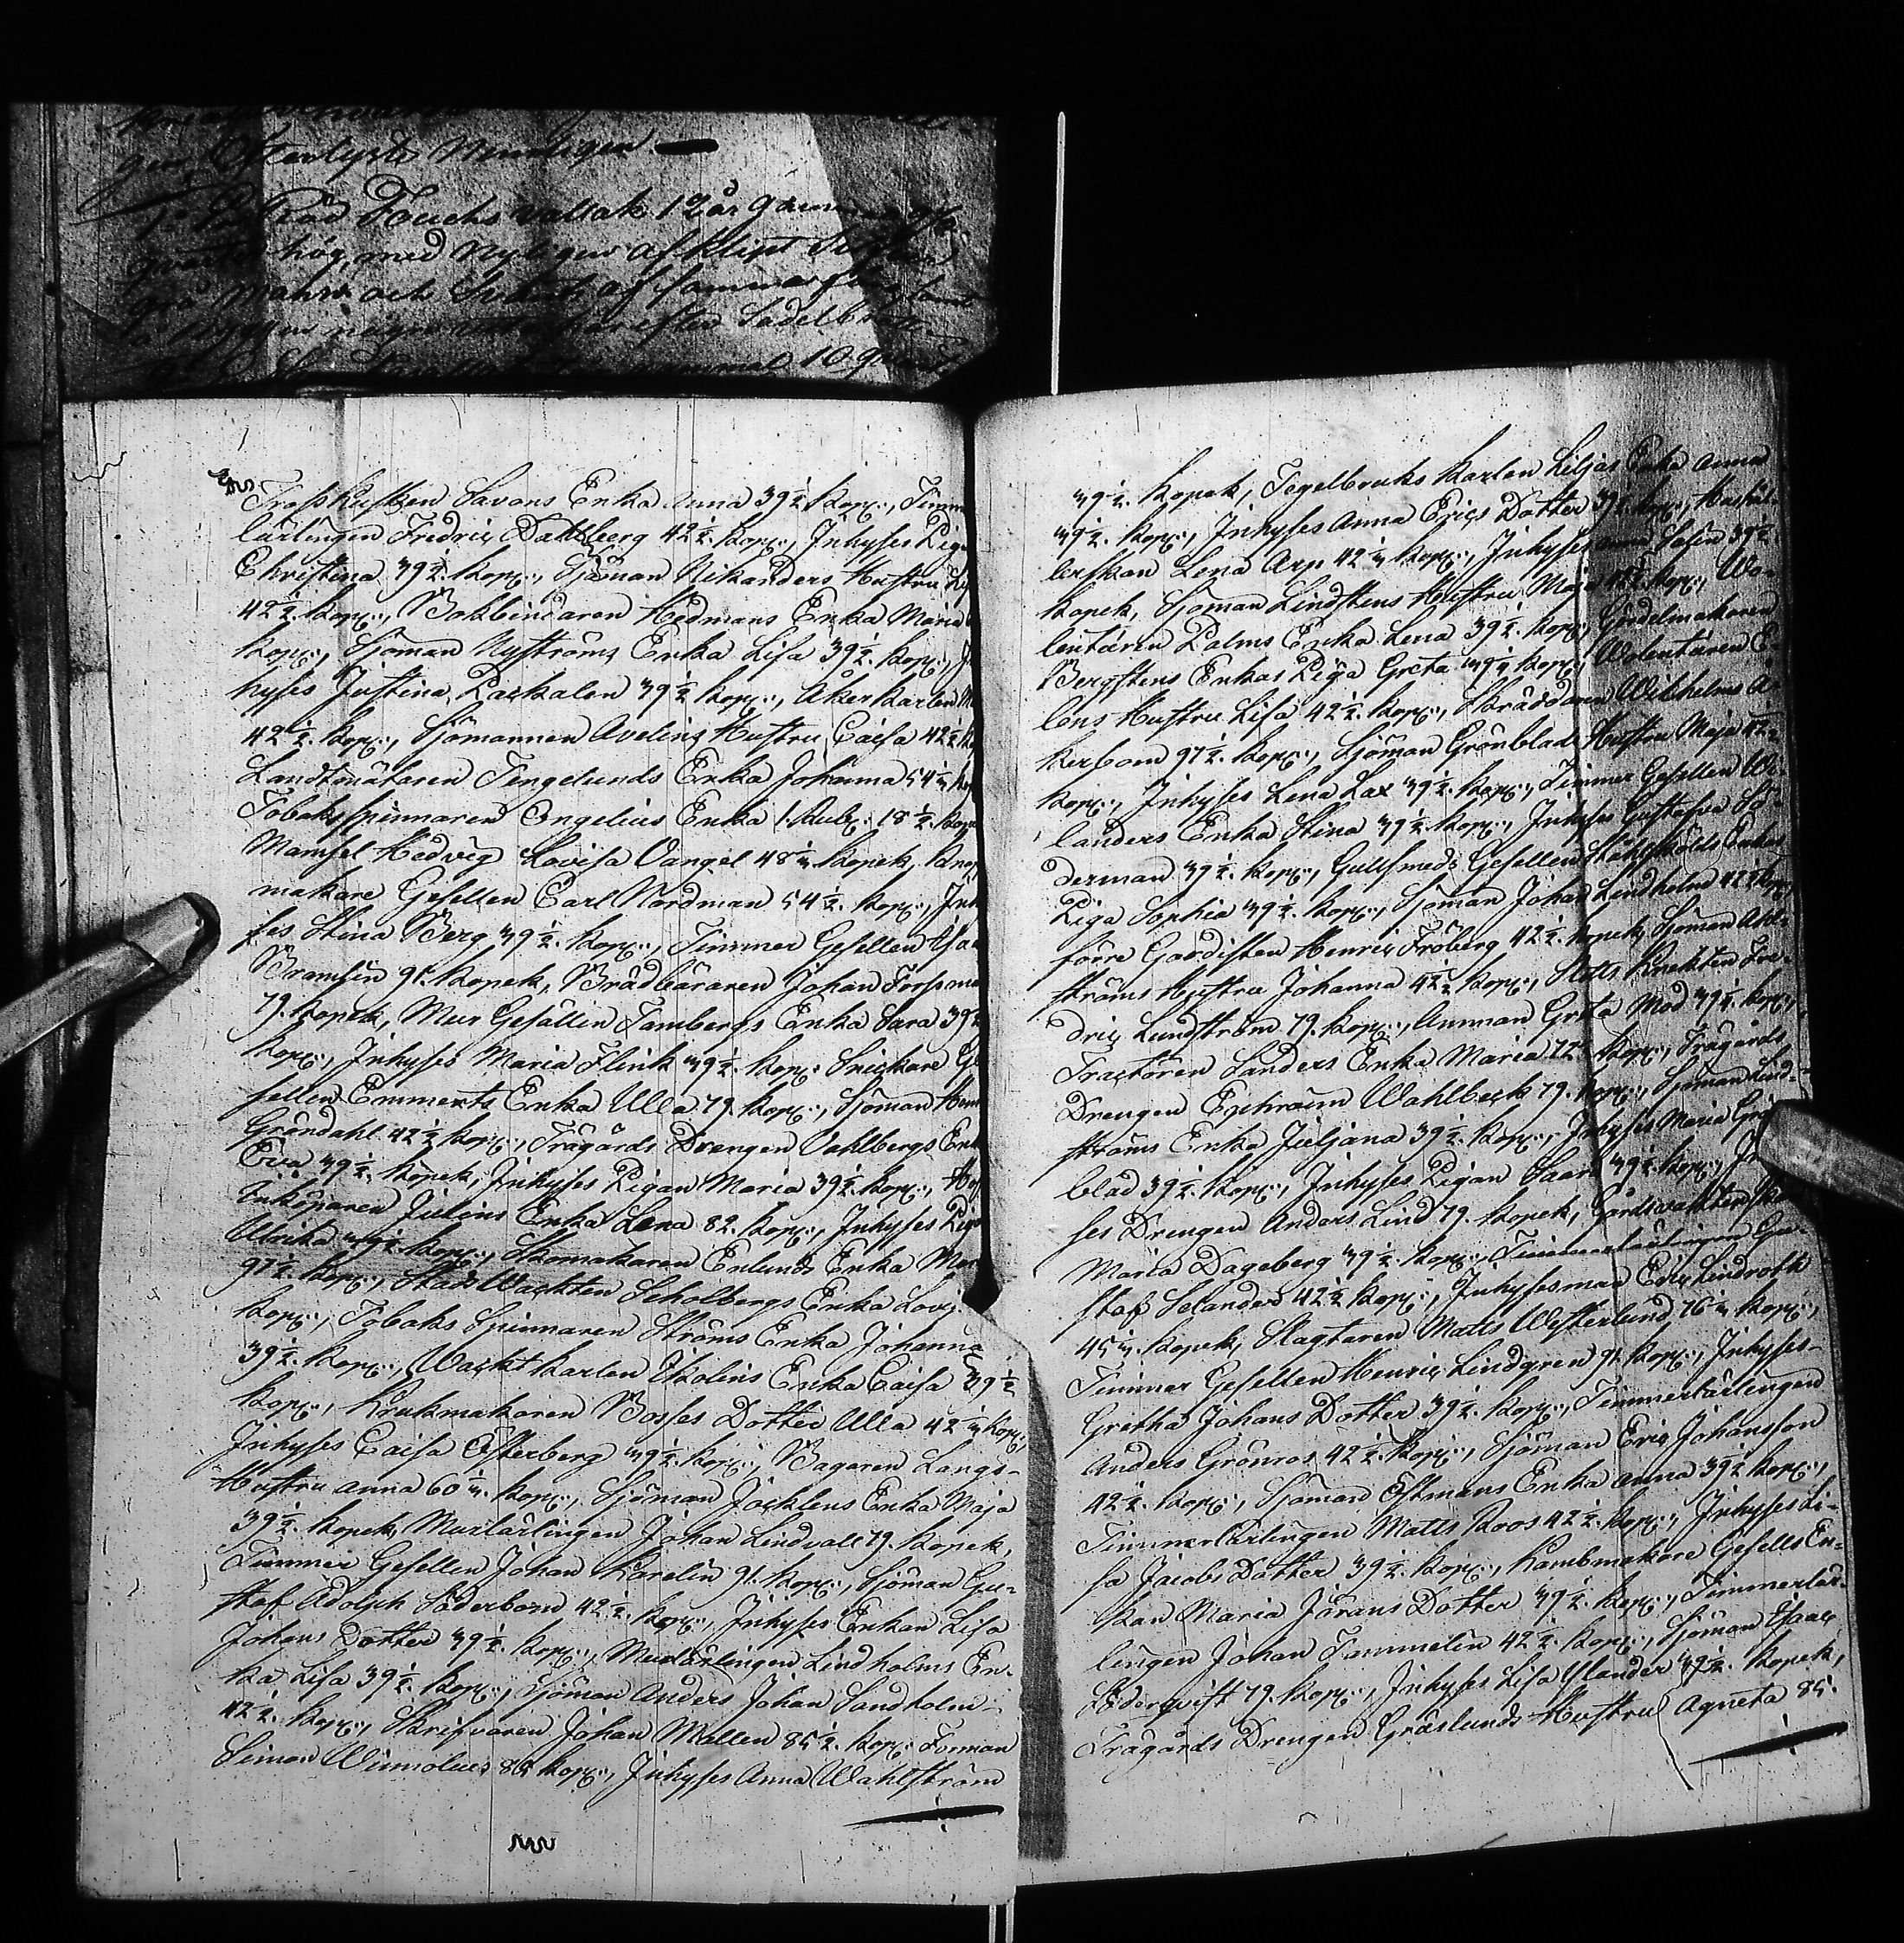 gen, Efterlystes Nemligen
1o En Röd Fuchs vallak 12 år gammal
qvarter hög, med Nyligen afklipt
grå Mahn och Svants af samma färg samt
å Ryggen några hvita hår efter Sadel
10 qvart
Trosskusken Savons Enka Anna 39 1/2 Kop:, Timmer
lärlingen Fredric Dahlberg 42 1/2. Kop:, Inhyses Pigan
Christina 39 1/2. Kop:, Sjöman Nikanders Hustru
42 1/2. Kop:, Bokbindaren Hedmans Enka Maria
Kop:, Sjöman Nyströms Enka Lisa 39 1/2. Kop:, In
hyses Justina Packalen 39 1/2 Kop:, Åkerkarlen
42 1/2. Kop:, Sjömannen Avelins Hustru Caisa 42 1/2
Landtmätaren Tengelunds Enka Johanna 54 1/2 Kop
Tobaksspinnaren Engelius Enka 1 Rub: 18 1/2. Kopek
Mamsel Hedvig Lovisa Vangel 48 1/2 Kopek, Knap
makare Gesellen Carl Nordman 54 1/2. Kop:, Inhy
ses Stina Berg 39 1/2. Kop:, Timmer Gesellen Isac
Bramsén 91. Kopek, Brädbäraren Johan Forssman
79. Kopek, Mur Gesällen Tambergs Enka Sara 39 1/2
Kop:, Inhyses Maria Flink 39 1/2. Kop: Snickare Ge
sellen Emmerts Enka Ulla 79. Kop:, Sjöman Henr
Gröndahl 42 1/2 Kop:, Trägårds Drengen Vahlbergs Enka
Eva 39 1/2. Kopek, Inhyses Pigan Maria 39 1/2. Kop:,
Inköparen Julins Enka Lena 82. Kop:, Inhyses Pigan
Ulrika 39 1/2. Kop:, Skomakaren Enlunds Enka Mar
97 1/2. Kop:, Stads Wackten Scholbergs Enka Lovis:
Kop:, Tobaks Spinnaren Ströms Enka Johanna
39 1/2. Kop:, Wacktkarlen Ekolins Enka Caisa 39 1/2
Kop:, Krukmakaren Bosses Dotter Ulla 42 1/2 Kop:,
Inhyses Caisa Österberg 39 1/2. Kop:, Bagaren Längs-
Hustru Anna 60 1/2. Kop:, Sjöman Jacklens Enka Maja
39 1/2. Kopek, Murlärlingen Johan Lindvall 79. Kopek,
Timmer Gesellen Johan Karelin 91. Kop:, Sjöman Gu-
staf Adolph Söderbom 42 1/2. Kop:, Inhyses Enkan Lisa
Johans Dotter 39 1/2. Kop:, Murlärlingen Lindholms En-
ka Lisa 39 1/2. Kop:, Sjöman Anders Johan Sandholm
42 1/2. Kop:, Skrifvaren Johan Mollen 85 1/2. Kop: Forman
Simon Wimolues 85 Kop:, Inhyses Anna Wahlström
39 1/2. Kopek, Tegelbruks Karlen Liljas Enka Anna
39 1/2. Kop:, Inhyses Anna Erics Dotter 39 1/2. Kop:, Hushål-
lerskan Lena Arp 42 1/2 Kop:, Inhyses Anna Safen 39 1/2
Kopek, Sjöman Lindstens Hustru Maja 42 1/2. Kop:, Wo-
lentären Palms Enka Lena 39 1/2. Kop:, Gördelmakaren
Bergstens Enkas Piga Greta 39 1/2 Kop:, Wolentären E-
lens Hustru Lisa 42 1/2. Kop:, Skräddaren Wilhelms Å-
kerbom 97 1/2. Kop:, Sjöman Grönblads Hustru Maja 42 1/2
Kop:, Inhyses Lena Lax 39 1/2. Kop:, Timmer Gesellen We-
landers Enka Stina 39 1/2. Kop:, Inhyses Gustafva Sö-
derman 39 1/2. Kop:, Gullsmeds Gesellen Stålhjölds Enkas
Piga Sophia 39 1/2. Kop:, Sjöman Johan Lindholm 42 1/2 Kop:,
förre Gardisten Henric Fröberg 42 1/2. Kopek, Sjöman Ahl-
ströms Hustru Johanna 42 1/2 Kop:, Slotts Knekten Fre-
dric Lundström 79. Kop:, Amman Greta Mod 39 1/2. Kop:,
Tractören Sanders Enka Maria 72 Kop:, Trägårds
Drengen Ephraim Wahlbeck 79. Kop:, Sjöman Lind-
ströms Enka Juljana 39 1/2. Kop:, Inhyses Maria Grön
blad 39 1/2. Kop:, Inhyses Pigan Saara 39 1/2. Kop:, Inhy
ses Drengen Anders Lind 79. Kopek, Gårdsvaktersk
Maria Dageberg 39 1/2. Kop:, Timmerlärlingen Gu-
staf Selander 42 1/2 Kop:, Inhysesman Eric Lindroth
45 1/2 Kopek, Slagtaren Matts Westerlund 76 1/2 Kop:,
Timmer Gesellen Henric Lindgren 91. Kop:, Inhyses-
Gretha Johans Dotter 39 1/2. Kop:, Timmerlärlingen
Anders Grönros 42 1/2. Kop:, Sjöman Eric Johansson
42 1/2. Kop:, Sjöman Östmans Enka Anna 39 1/2. Kop:,
Timmerlärlingen Matts Roos 42 1/2. Kop:, Inhyses Li-
sa Jacobs Dotter 39 1/2. Kop:, Kambmakare Gesells En-
kan Maria Jörans Dotter 39 1/2. Kop:, Timmerlär-
lingen Johan Tammelin 42 1/2. Kop:, Sjöman Isaac
Söderqvist 79. Kop:, Inhyses Lisa Ylander 39 1/2. Kopek,
Trägårds Drengen Gräslunds Hustru Agneta 85.